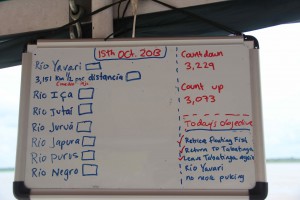 15th Oct. 2013
Río Yavari
3,151 km
por distancia
Río Iça
Río Jutaí
Río Juruá
Río Japura
Río Purus
Río Negro
Countdown
3,229
Count up
3,073
Todays Objective
Retrieve floating
Return to Tabatinga
Leave Tabatinga again
Río Yavari
no more puking